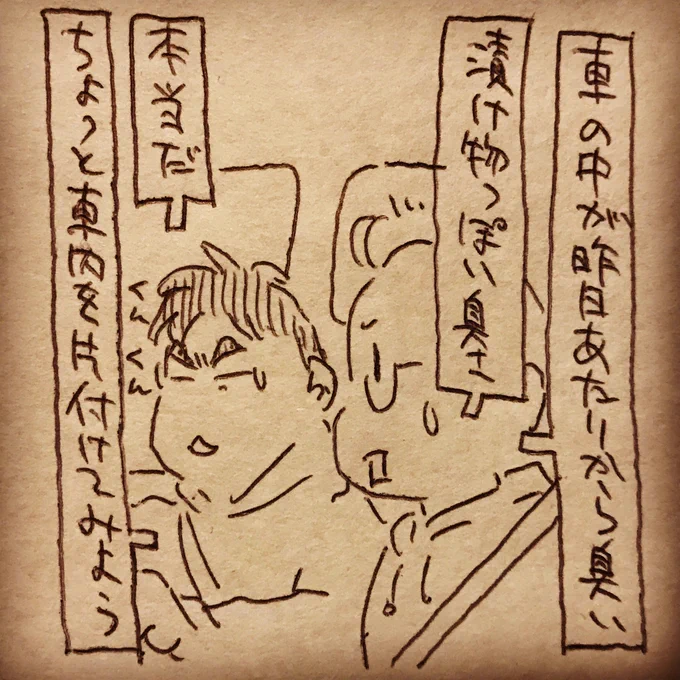 車の中が昨日あたりから臭い
漬け物っぽい臭さ
本当だ
くん
くん
ちょっと車内を片付けてみよう